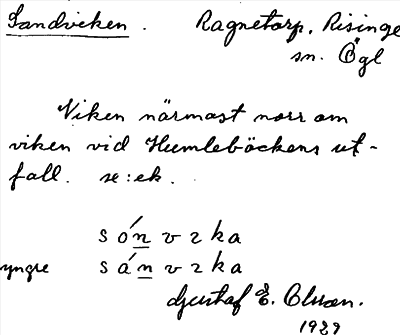 Sandviken. Ragnetorp, Risinge
sn. Ögl
Viken närmast norr om
viken vid Humlebäckens ut-
fall. se: ek.
sónvzka
yngre sánvzka
Gustaf E. Olsson.
1929